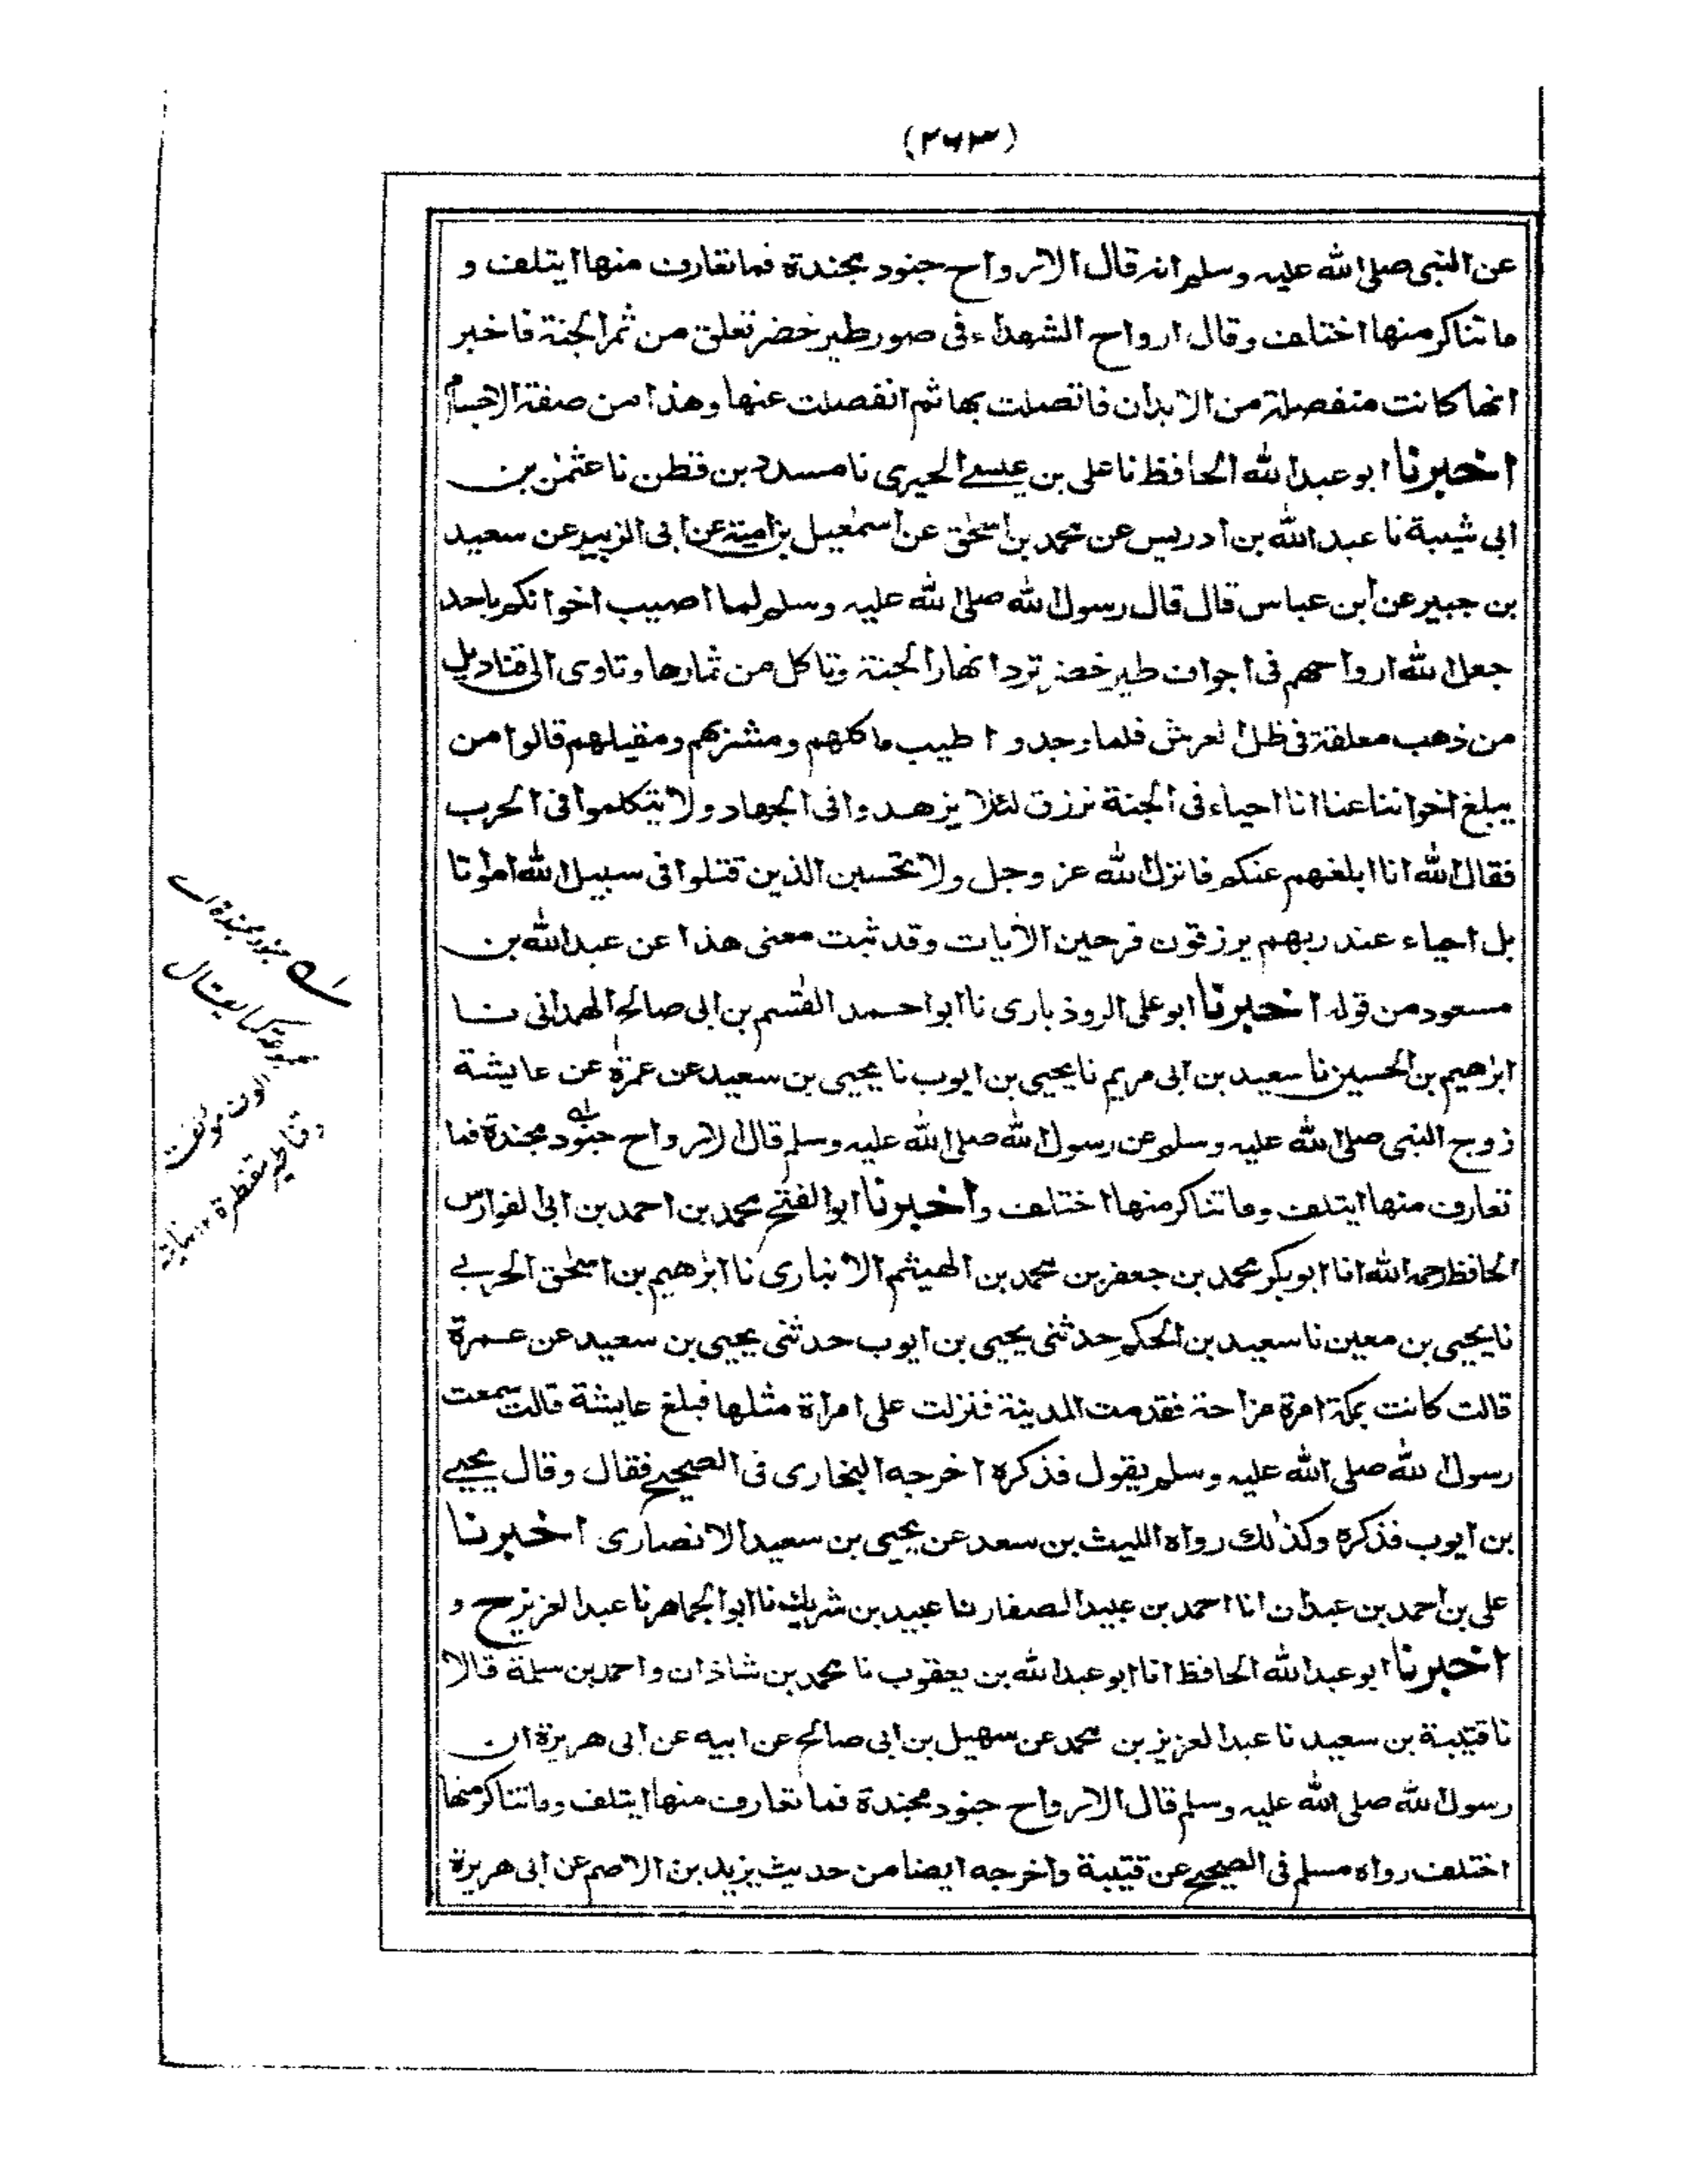 (٢٦٣)
عن النبى صلى الله عليه وسلم انه قال الارواح جنود مجندة فما تعارف منها ايتلف و
ما تناكر منها اختلف وقال ارواح الشهداء فى صور طير خضر تعلق من ثمر الجنة فاخبر
انها كانت منفصلة من الابدان فاتصلت بها ثم انفصلت عنها وهذا من صفة الاجسام
اخبرنا ابو عبد الله الحافظ نا على بن عيسى الحيرى نا مسدد بن قطن نا عثمٰن بن
ابى شيبة نا عبد الله بن ادريس عن محمد بن اسحٰق عن اسمٰعيل بن امية عن ابى الزبير عن سعيد
بن جبير عن ابن عباس قال قال رسول الله صلى الله عليه وسلم لما اصيب اخوانكم باحد
جعل الله ارواحهم فى اجواف طير خضر ترد انهار الجنة وتاكل من ثمارها وتاوى الى قناديل
من ذهب معلقة فى ظل العرش فلما وجدوا طيب ماكلهم ومشربهم ومقيلهم قالوا من
يبلغ اخواننا عنا انا احياء فى الجنة نرزق لئلا يزهدوا فى الجهاد ولا يتكلموا فى الحرب
فقال الله انا ابلغهم عنكم فانزل الله عز وجل ولا تحسبن الذين قتلوا فى سبيل الله امواتا
بل احياء عند ربهم يرزقون فرحين الاٰيات وقد ثبت معنى هذا عن عبد الله بن
مسعود من قوله اخبرنا ابو على الروذبارى نا ابو احمد القٰسم بن ابى صالح الهمدانى نا
ابرٰهيم بن الحسين نا سعيد بن ابى مريم نا يحيى بن ايوب نا يحيى بن سعيد عن عمرة عن عايشة
زوج النبى صلى الله عليه وسلم عن رسول الله صلى الله عليه وسلم قال الارواح جنود مجندة فما
تعارف منها ايتلف وما تناكر منها اختلف واخبرنا ابو الفتح محمد بن احمد بن ابى الفوارس
الحافظ رحمه الله انا ابو بكر محمد بن جعفر بن محمد بن الهيثم الانبارى نا ابرٰهيم بن اسحٰق الحربى
نا يحيى بن معين نا سعيد بن الحكم حدثنى يحيى بن ايوب حدثنى يحيى بن سعيد عن عمرة
قالت كانت بمكة امرة مزاحة فقدمت المدينة فنزلت على امراة مثلها فبلغ عايشة قالت سمعت
رسول الله صلى الله عليه وسلم يقول فذكره اخرجه البخارى فى الصحيح فقال وقال يحيى
بن ايوب فذكره وكذلك رواه الليث بن سعد عن يحيى بن سعيد الانصارى اخبرنا
على بن احمد بن عبدان انا احمد بن عبيد الصفار نا عبيد بن شريك نا ابو الجماهر نا عبد العزيز ح و
اخبرنا ابو عبد الله الحافظ انا ابو عبد الله بن يعقوب نا محمد بن شاذان واحمد بن سلمة قالا
نا قتيبة بن سعيد نا عبد العزيز بن محمد عن سهيل بن ابى صالح عن ابيه عن ابى هريرة ان
رسول الله صلى الله عليه وسلم قال الارواح جنود مجندة فما تعارف منها ايتلف وما تناكر منها
اختلف رواه مسلم فى الصحيح عن قتيبة واخرجه ايضا من حديث يزيد بن الاصم عن ابى هريرة
جنود مجندة اى
مجموعة كما يقال
الوف مولفة
وقناطير مقنطرة